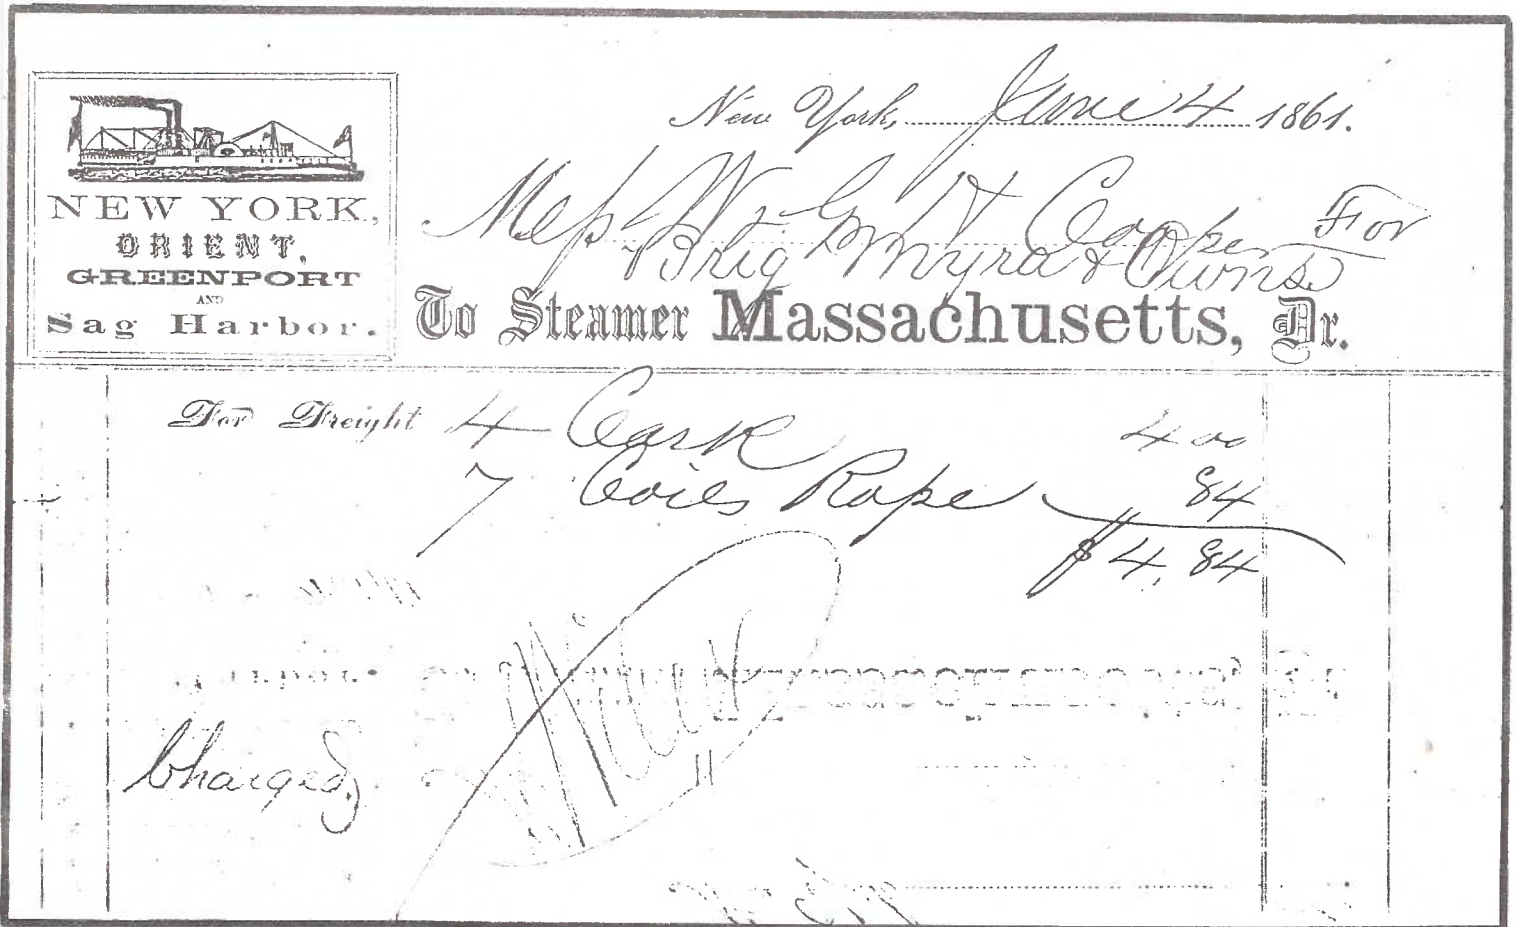 NEW YORK,
ORIENT,
GREENPORT
AND
Sag Harbor.
New York, June 4 1861.
Mess W & G H Cooper For
Brig Myra & Owns
To Steamer Massachusetts, Dr.
For Freight 4 Cask 4 00
7 Coils Rope 84
$ 4,84
Charged,